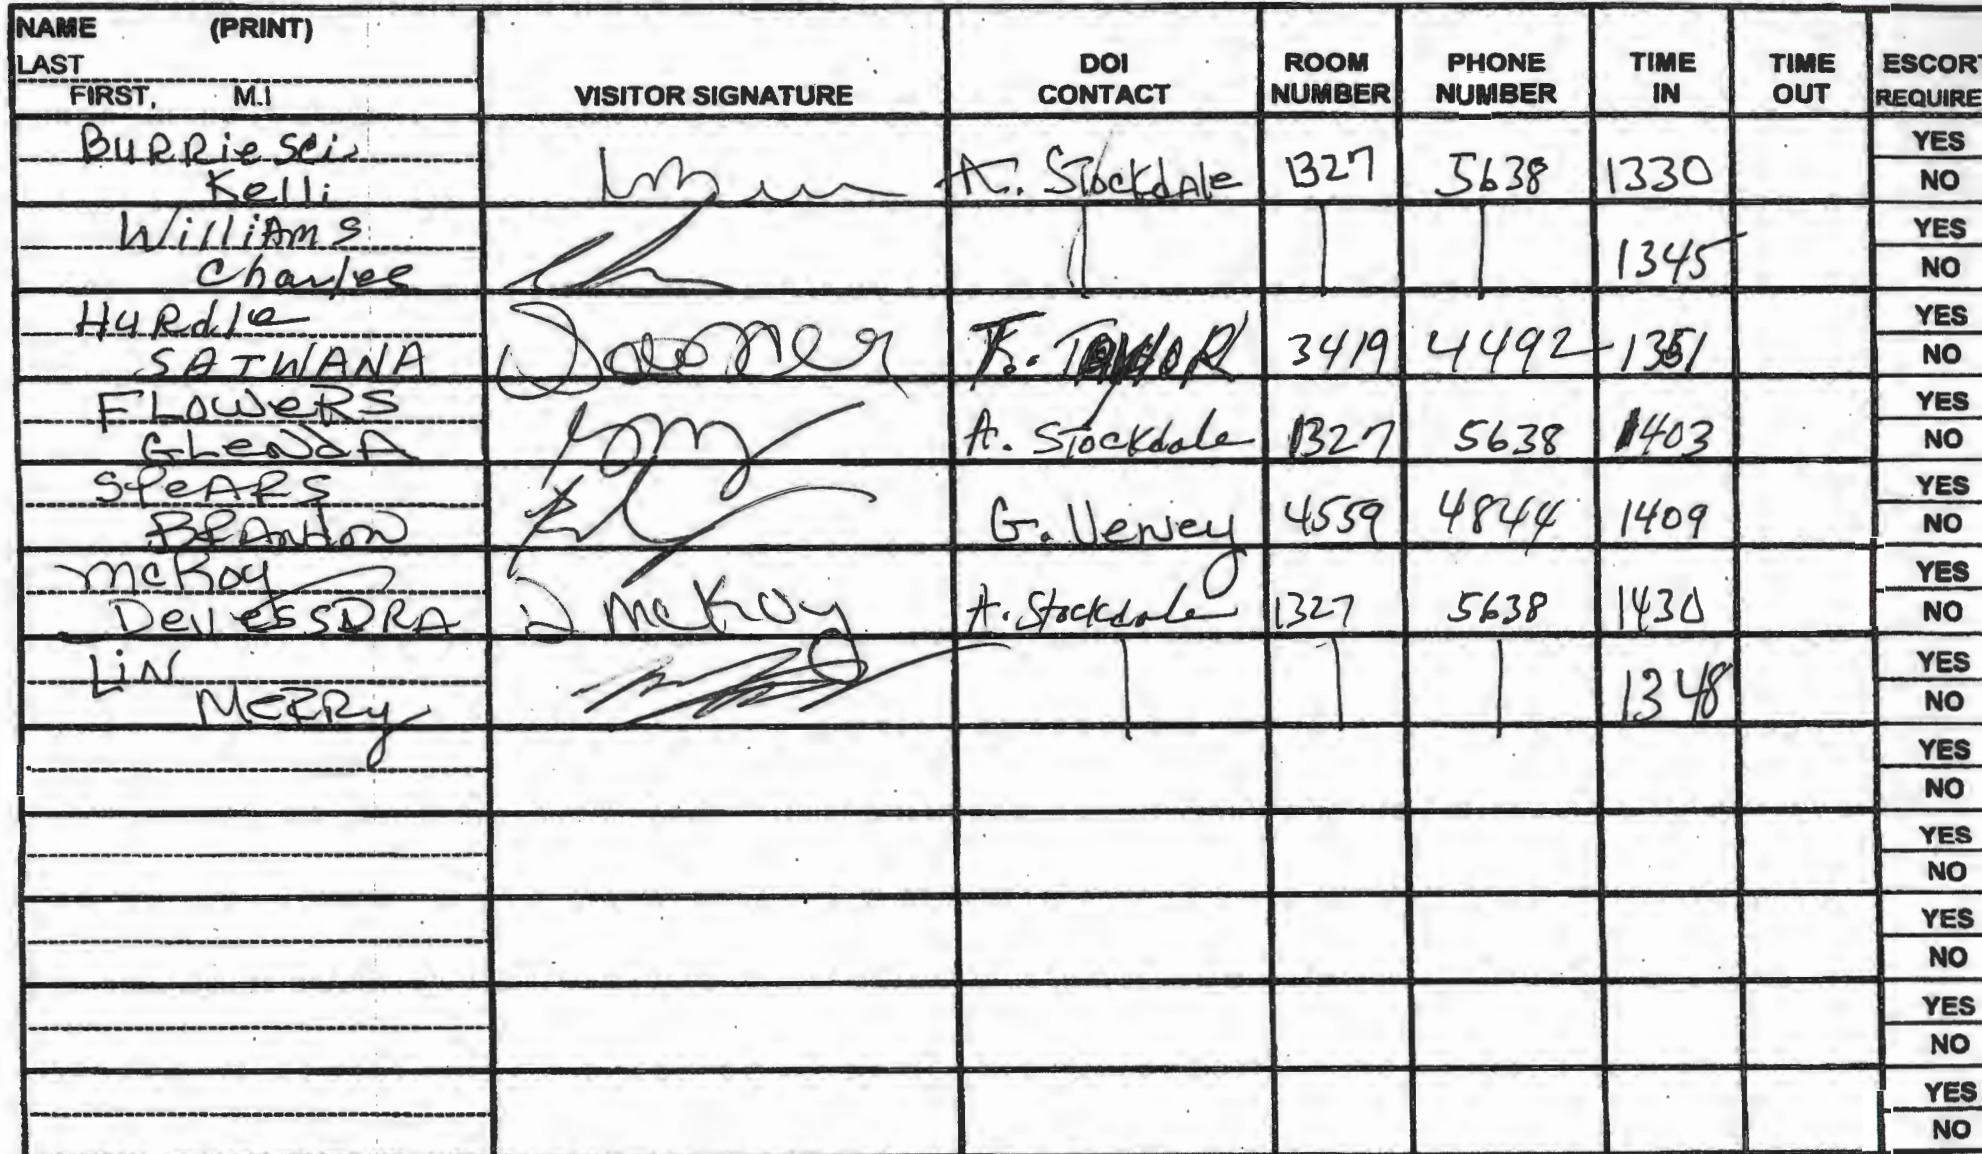 NAME (PRINT)
LAST
FIRST, M.I
VISITOR SIGNATURE
DOI CONTACT
ROOM NUMBER
PHONE NUMBER
TIME IN
TIME OUT
ESCORT REQUIRE
BURRiesci
Kelli
A. Stockdale 1327 5638 1330
YES
NO
Williams
Charles
1345
YES
NO
HURdle
SATWANA
3419 4492 1351
YES
NO
FLoweRS
GLendA
A. Stockdale 1327 5638 1403
YES
NO
SPeARS
BRAndon
G. Vervey 4559 4844 1409
YES
NO
McKoy
D McKoy A. Stockdale 1327 5638 1430
YES
NO
LiN
MeRRy
1348
YES
NO
YES
NO
YES
NO
YES
NO
YES
NO
YES
NO